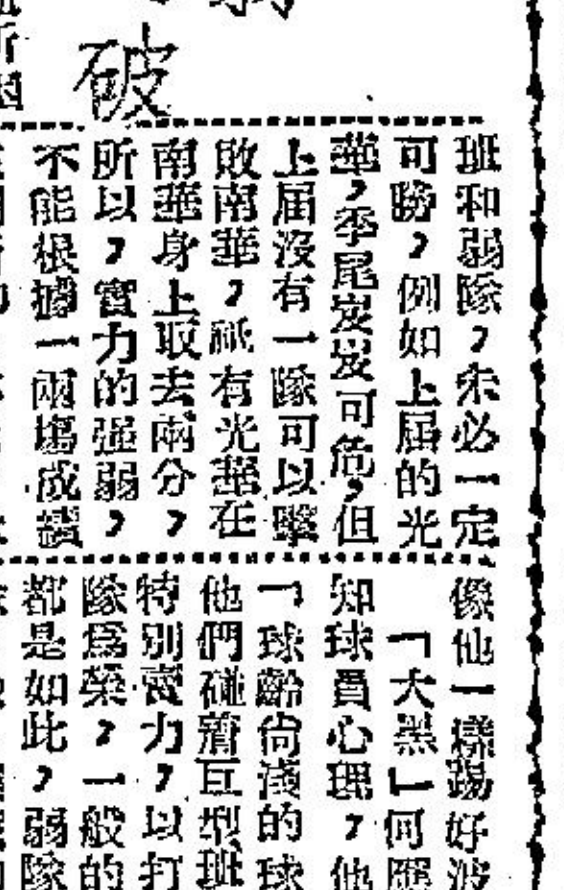 破
班和弱隊，未必一定
可勝，例如上屆的光
華，季尾岌岌可危，但
上屆沒有一隊可以擊
敗南華，祇有光華在
南華身上取去兩分，
所以，實力的强弱，
不能根據一兩場成績
像他一樣踢好波
「大黑」何應
知球員心理，他
「球齡尚淺的球
他們碰着巨型班
特別賣力，以打
隊爲榮，一般的
都是如此，弱隊